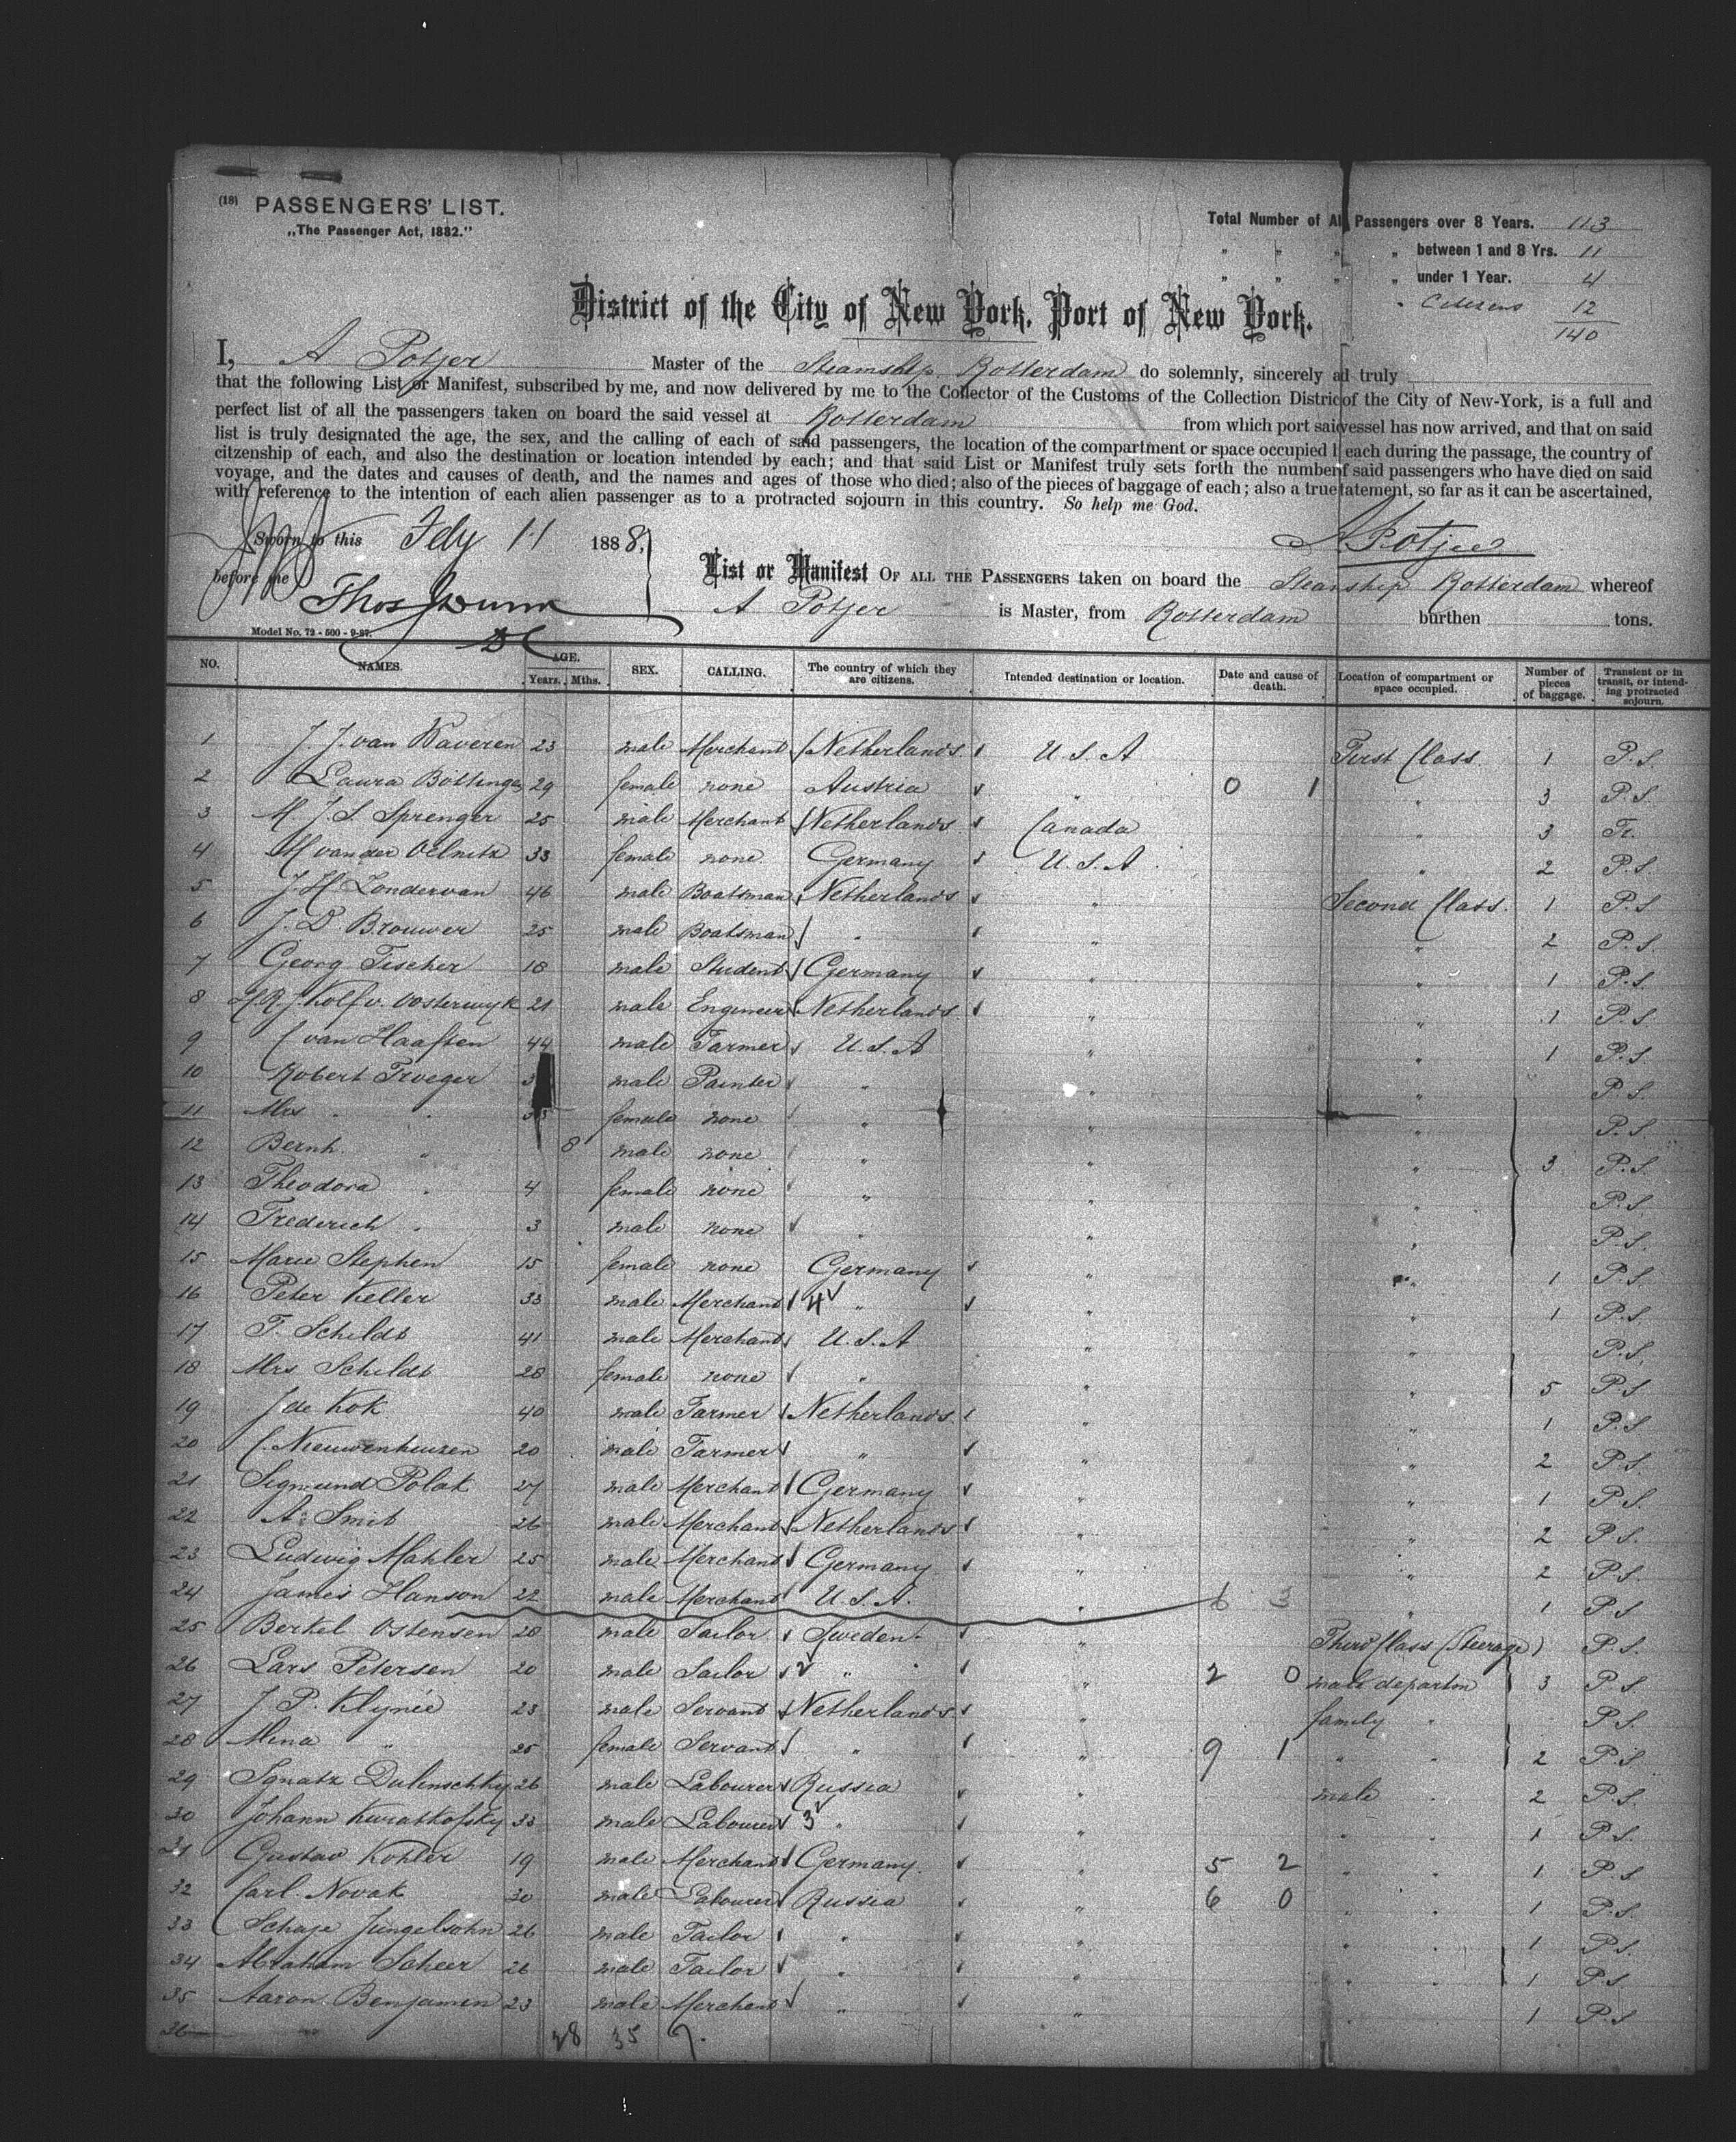 (18) PASSENGERS' LIST.
„The Passenger Act, 1882."
Total Number of All Passengers over 8 Years. 113
„ „ „ „ between 1 and 8 Yrs. 11
„ „ „ „ under 1 Year. 4
Citizens 12
140
District of the City of New York, Port of New York.
I, A Potjer Master of the Steamship Rotterdam do solemnly, sincerely ad truly
that the following List or Manifest, subscribed by me, and now delivered by me to the Collector of the Customs of the Collection District of the City of New-York, is a full and
perfect list of all the passengers taken on board the said vessel at Rotterdam from which port said vessel has now arrived, and that on said
list is truly designated the age, the sex, and the calling of each of said passengers, the location of the compartment or space occupied b each during the passage, the country of
citzenship of each, and also the destination or location intended by each; and that said List or Manifest truly sets forth the number f said passengers who have died on said
voyage, and the dates and causes of death, and the names and ages of those who died; also of the pieces of baggage of each; also a true tatement, so far as it can be ascertained,
with reference to the intention of each alien passenger as to a protracted sojourn in this country. So help me God.
Sworn to this Feby 11 1888,
A. Potjer
before me Thos
List or Manifest OF ALL THE PASSENGERS taken on board the Steamship Rotterdam whereof
A Potjer is Master, from Rotterdam burthen tons.
Model No. 72 - 500 - 9-87.
NO. NAMES. AGE. Years. Mths. SEX. CALLING. The country of which they are citizens. Intended destination or location. Date and cause of death. Location of compartment or space occupied. Number of pieces of baggage. Transient or in transit, or intending protracted sojourn.
1 J. J. van Waveren 23 male Merchant Netherlands U.S.A First Class 1 P.S.
2 Laura Böttinger 29 female none Austria „ 0 1 „ 3 P.S.
3 M. J. S. Sprenger 25 male Merchant Netherlands Canada „ 3 Tr.
4 M van der Oelnitz 33 female none Germany U.S.A „ 2 P.S.
5 J. H. Zondervan 46 male Boatsman Netherlands „ Second Class 1 P.S
6 J. D. Brouwer 25 male Boatsman „ „ „ 2 P.S.
7 Georg Fischer 18 male Student Germany „ „ 1 P.S.
8 Kolf v. Oosterwyk 21 male Engineer Netherlands „ „ 1 P.S.
9 C van Haaften 44 male Farmer U.S.A „ „ 1 P.S
10 Robert Troeger male Painter „ „ „ P.S.
11 Mrs „ female none „ „ „ P.S.
12 Bernh. „ 8 male none „ „ „ 3 P.S.
13 Theodora „ 4 female none „ „ „ P.S.
14 Frederich „ 3 male none „ „ „ P.S.
15 Marie Stephen 15 female none Germany „ „ 1 P.S.
16 Peter Keller 33 male Merchant 4 „ „ „ 1 P.S.
17 F. Schildt 41 male Merchant U.S.A „ „ P.S.
18 Mrs Schildt 28 female none „ „ „ 5 P.S
19 J de Kok 40 male Farmer Netherlands „ „ 1 P.S
20 C. Nieuwenhuizen 20 male Farmer „ „ „ 2 P.S.
21 Sigmund Polak 27 male Merchant Germany „ „ 1 P.S.
22 A. Smit 26 male Merchant Netherlands „ „ 2 P.S.
23 Ludwig Mahler 25 male Merchant Germany „ „ 2 P.S.
24 James Hanson 22 male Merchant U.S.A. „ 6 3 „ 1 P.S
25 Bertel Ostensen 28 male Sailor Sweden „ Third Class (Steerage) P.S.
26 Lars Petersen 20 male Sailor 2 „ „ 2 0 male departm 3 P.S
27 J. P. Klynée 23 male Servant Netherlands „ family „ P.S.
28 Mina „ 25 female Servant „ „ 9 1 „ „ 2 P.S.
29 Ignatz Dulinschky 26 male Labourer Russia „ male „ 2 P.S.
30 Johann Kwiatkofsky 33 male Labourer 3 „ „ „ „ 1 P.S.
31 Gustav Kohler 19 male Merchant Germany. „ 5 2 „ „ 1 P.S
32 Carl. Novak 30 male Labourer Russia „ 6 0 „ „ 1 P.S.
33 Schaje Jungelsohn 26 male Tailor „ „ „ „ 1 P.S.
34 Abraham Scheer 26 male Tailor „ „ „ „ 1 P.S
35 Aaron Benjamin 23 male Merchant „ „ „ „ 1 P.S
36
28 35 7.